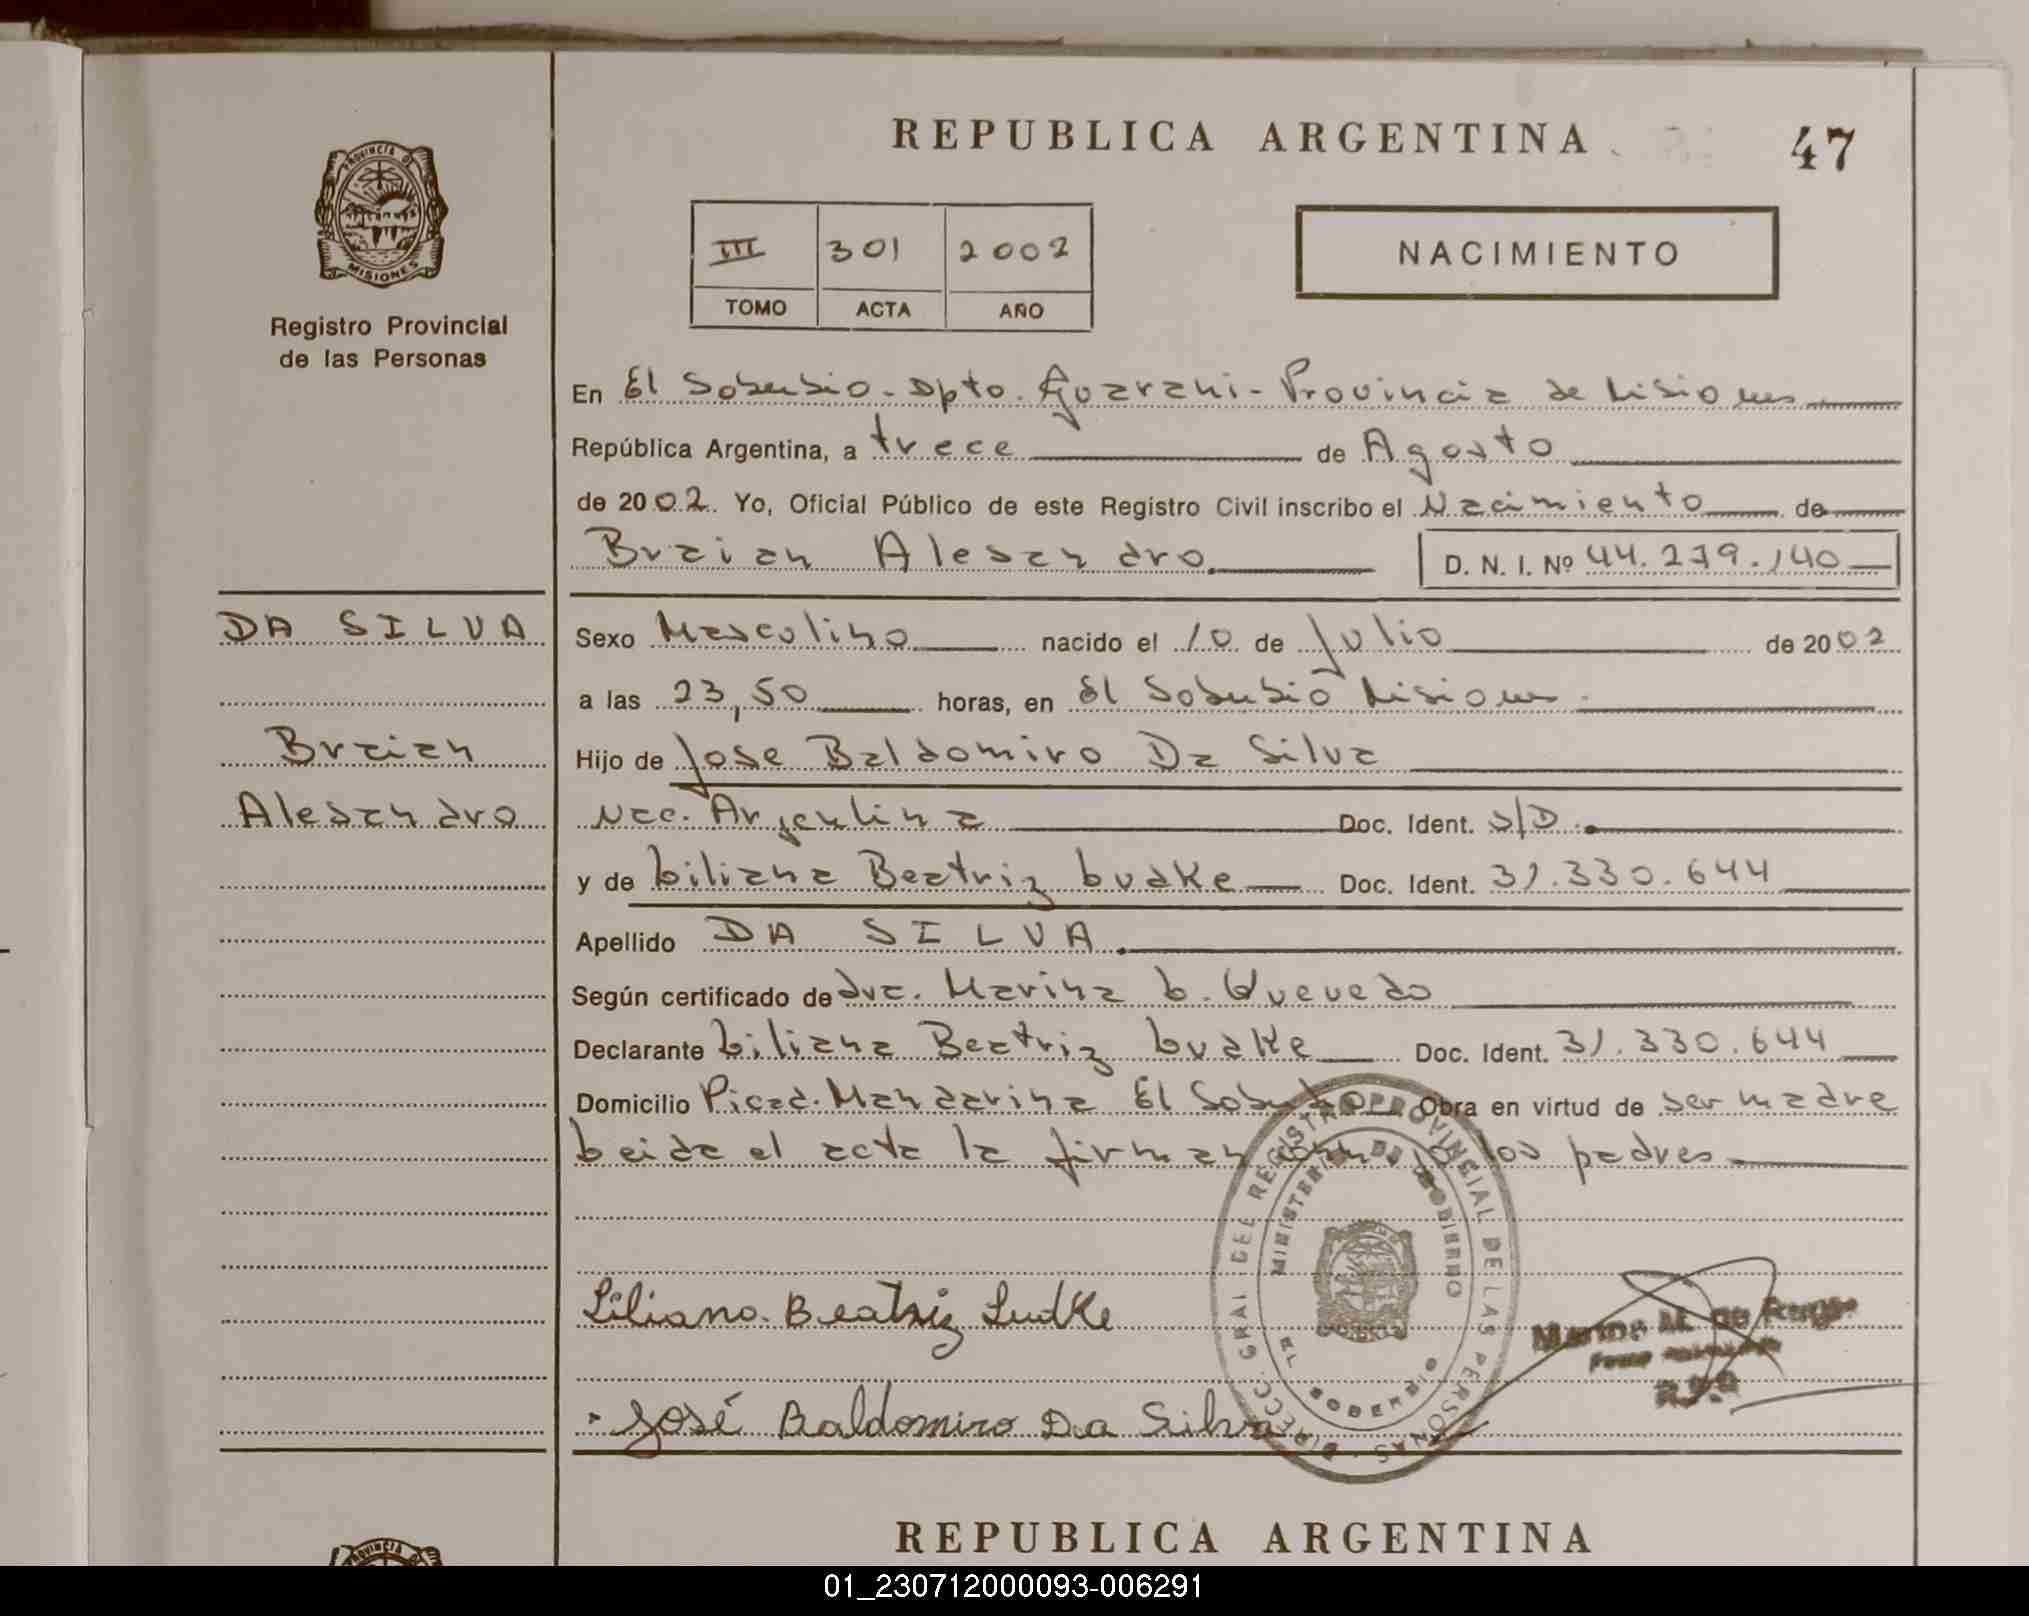 REPUBLICA ARGENTINA
47
PROVINCIA DE
MISIONES
Registro Provincial
de las Personas
III 301 2002
TOMO ACTA AÑO
NACIMIENTO
En El Soberbio - Dpto. Guarani - Provincia de Misiones
República Argentina, a trece de Agosto
de 2002. Yo, Oficial Público de este Registro Civil inscribo el Nacimiento de
Braian Alesandro D. N. I. Nº 44.279.140
DA SILVA
Braian
Alesandro
Sexo Masculino nacido el 10 de Julio de 2002
a las 23,50 horas, en El Soberbio Misiones.
Hijo de Jose Baldomiro Da Silva
Nac. Argentina Doc. Ident. S/D.
y de Liliana Beatriz Ludke Doc. Ident. 31.330.644
Apellido DA SILVA
Según certificado de dra. Marina L. Quevedo
Declarante Liliana Beatriz Ludke Doc. Ident. 31.330.644
Domicilio Picad. Mandarina El Soberbio Obra en virtud de ser madre
Leida el acta la firman los padres
DIRECC. GRAL DEL REGISTRO PROVINCIAL DE LAS PERSONAS
MINISTERIO DE GOBIERNO
EL SOBERBIO
Liliana Beatriz Ludke
José Baldomiro Da Silva
REPUBLICA ARGENTINA
PROVINCIA DE
01_230712000093-006291